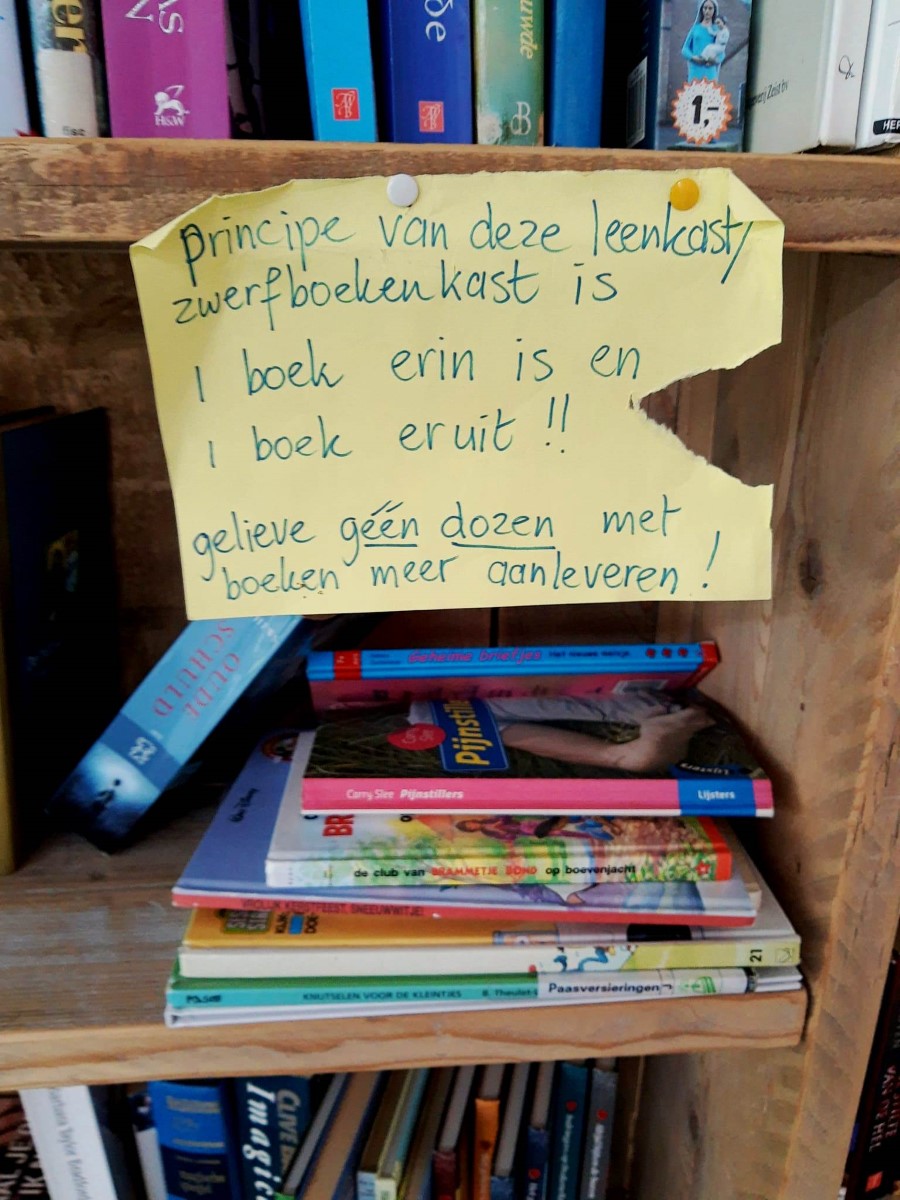 er
H&W
de
uwde
B
1,-
HER
principe van deze leenkast/
zwerfboekenkast is
1 boek erin is en
1 boek eruit !!
gelieve géén dozen met
boeken meer aanleveren !
OUDE
SCHULD
Geheime briefjes
Carry
Slee
Pijnstille
Lijsters
Carry Slee Pijnstillers Lijsters
BR
de club van BRAMMETJE BOND op boevenjacht
VROLIJK KERSTFEEST, SNEEUWWITJE!
21
KNUTSELEN VOOR DE KLEINTJES
Paasversieringen
Barbara Taylor Bradford
CLIVE
Imagic